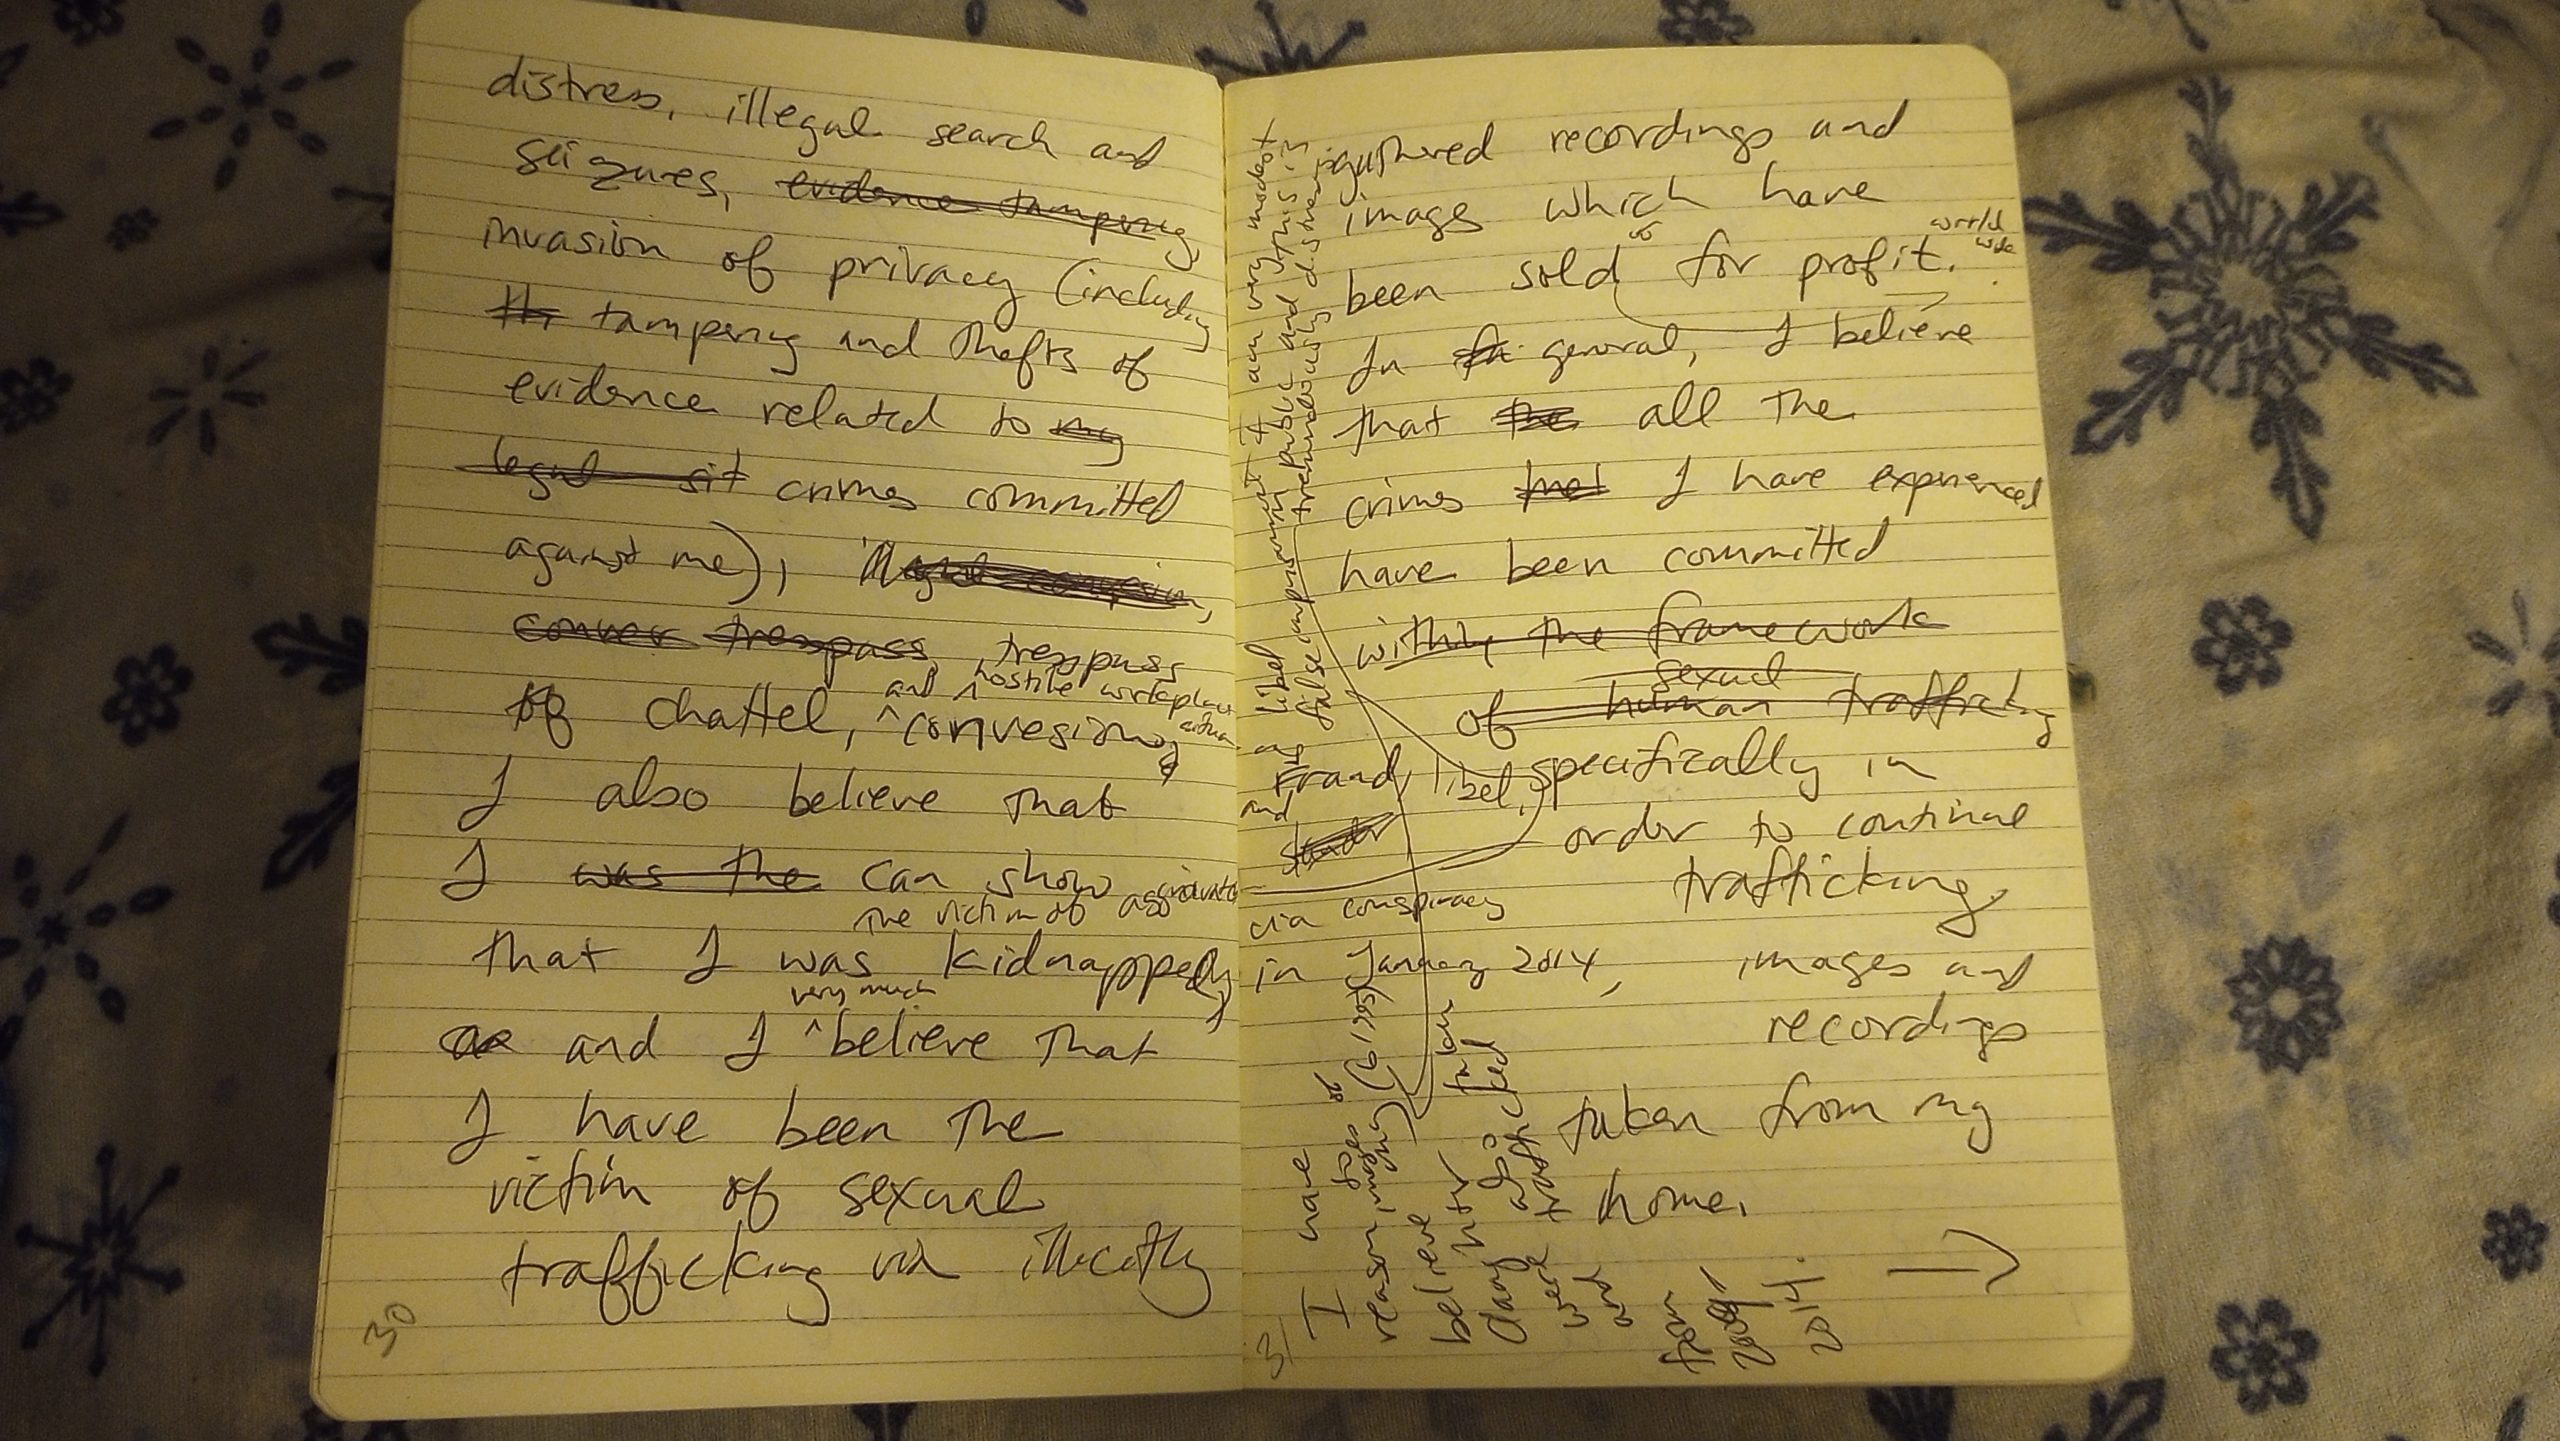 distress, illegal search and
seizures, evidence tampering,
invasion of privacy (including
th tampering and thefts of
evidence related to my
legal sit crimes committed
against me),
conver trespass, trespass
of chattel, ^ conversion,
and ^ hostile workplace
I also believe that
I was the can show
the victim of aggravated
that I was kidnapped,
very much
and I ^ believe that
I have been the
victim of sexual
trafficking via illicitly
30
gathered recordings and
image which have
been sold for profit.
world
wide
In general, I believe
that the all the
crimes that I have experienced
have been committed
within the framework
sexual
of human trafficking
specifically in
order to continue
trafficking,
images and
recordings
taken from my
home.
Fraud, libel,
and
slander
via conspiracy
in January 2014,
I have
reason to
believe
images of
my
(61995)
taken
were also
and trafficked
from
2009
2014.
libel
false imprisonment
I am very modest
and this is
public and
tremendously distressing
31